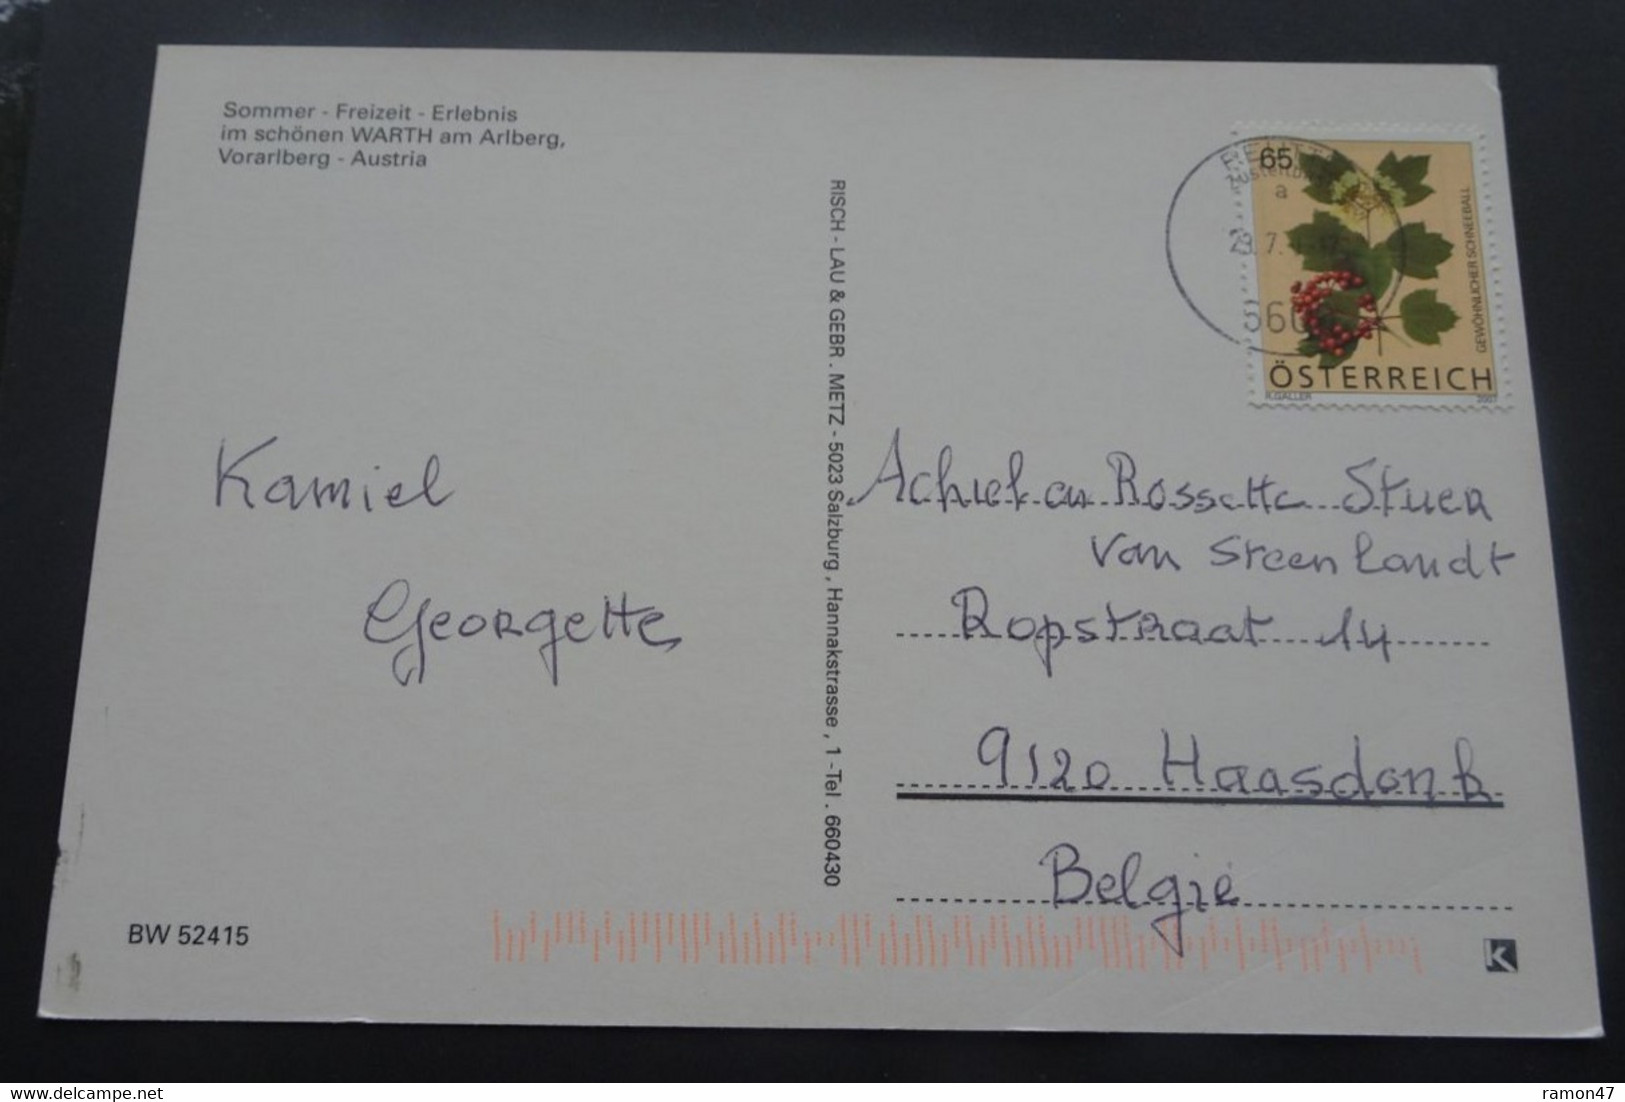 Sommer - Freizeit - Erlebnis
im schönen WARTH am Arlberg,
Vorarlberg - Austria
RISCH - LAU & GEBR . METZ - 5023 Salzburg , Hannakstrasse , 1 - Tel . 660430
65
a
GEWÖHNLICHER SCHNEEBALL
ÖSTERREICH
K.GALLER 2007
Kamiel
Georgette
Achiel en Rossette Stuer
Van Steenlandt
Ropstraat 14
9120 Haasdonk
Belgie
BW 52415
K
ramon47